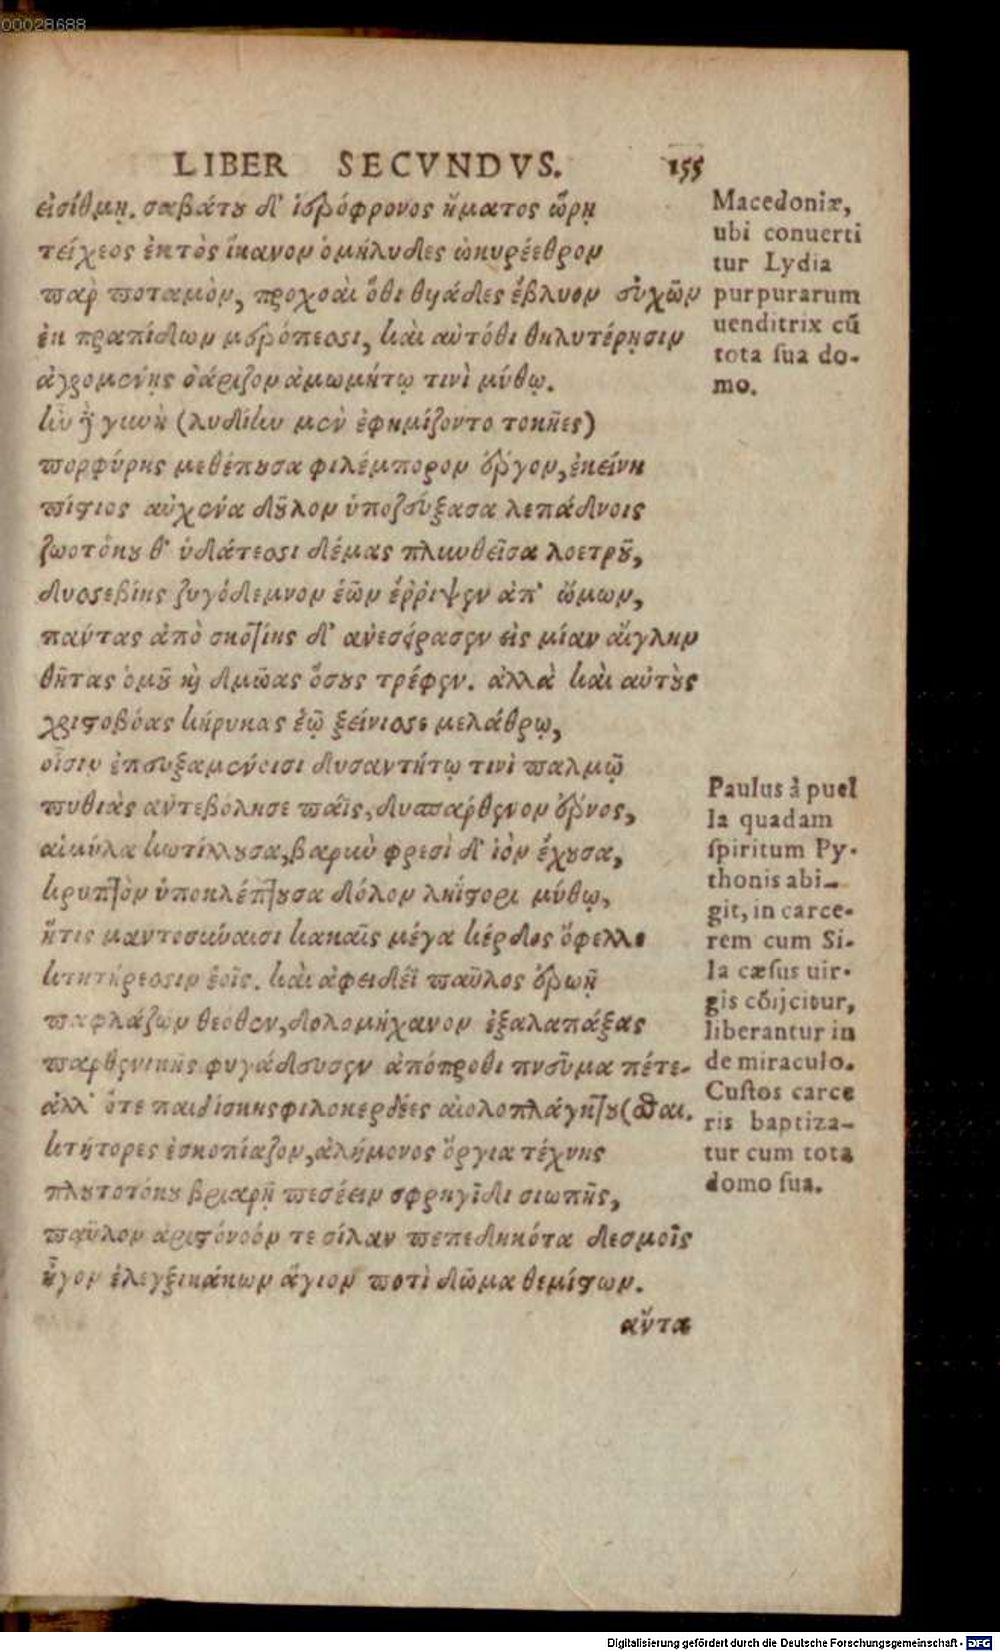 00028688
LIBER SECVNDVS. 155
εἰσίθμῃ. σαβάτου δ' ἱερόφρονος ἤματος ὥρῃ
τείχεος ἐκτὸς ἵκανον ὁμήλυδες ὠκυρέεθρον
παρ ποταμὸν, προχοαὶ ὅθι θυάδες ἔβλυον εὐχῶν
ἐκ πραπίδων μερόπεσσι, καὶ αὐτόθι θηλυτέρῃσιν
ἀγρομένῃς ὀάριζον ἀμωμήτῳ τινὶ μύθῳ.
ὧν γυνὴ (λυδίην μὲν ἐφημίζοντο τοκῆες)
πορφύρης μεθέπουσα φιλέμπορον ἔργον, ἐκείνη
πίστιος αὐχένα δοῦλον ὑποζεύξασα λεπάδνοις
ζωοτόκου θ' ὑδάτεσσι δέμας πλυνθεῖσα λοετροῦ,
δυσσεβίης ζυγόδεμνον ἑῶν ἔρριψεν ἀπ' ὤμων,
πάντας ἀπὸ σκοτίης δ' ἀνεσέρασεν εἰς μίαν αἴγλην
θῆτας ὁμοῦ καὶ δμῶας ὅσους τρέφεν. ἀλλὰ καὶ αὐτοὺς
χριστοβόας κήρυκας ἑῷ ξείνισσε μελάθρῳ,
οἷσιν ἐπευξαμένοισι δυσαντήτῳ τινὶ παλμῷ
πυθιὰς ἀντεβόλησε πάϊς, δυσπάρθενον ἔρνος,
αἱμύλα κωτίλλουσα, βαρὺν φρεσὶ δ' ἰὸν ἔχουσα,
κρυπτὸν ὑποκλέπτουσα δόλον ληΐστορι μύθῳ,
ἥτις μαντοσύναισι κακαῖς μέγα κέρδος ὄφελλε
κτητήρεσσιν ἑοῖς. καὶ ἀφειδέϊ παῦλος ἐρωῇ
παφλάζων θεόθεν, δολομήχανον ἐξαλαπάξας
παρθενικῆς φυγάδευσεν ἀπόπροθι πνεῦμα πέτε-
ἀλλ' ὅτε παιδίσκης φιλοκερδέες αἰολοπλάγκτου (σθαι.
κτήτορες ἐσκοπίαζον, ἀλήμονος ὄργια τέχνης
πλουτοτόκου βριαρῇ πεσέειν σφρηγῖδι σιωπῆς,
παῦλον ἀριστόνοόν τε σίλαν πεπεδηκότα δεσμοῖς
ἦγον ἐλεγξικάκων ἅγιον ποτὶ δῶμα θεμίστων.
αὖτα
Macedoniæ,
ubi conuerti
tur Lydia
purpurarum
uenditrix cũ
tota sua do-
mo.
Paulus à puel
la quadam
spiritum Py-
thonis abi-
git, in carce-
rem cum Si-
la cæsus uir-
gis cõijcitur,
liberantur in
de miraculo.
Custos carce
ris baptiza-
tur cum tota
domo sua.
Digitalisierung gefördert durch die Deutsche Forschungsgemeinschaft - DFG